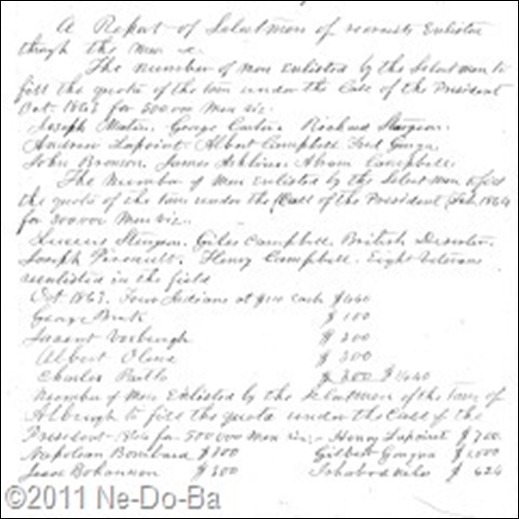 A Report of Selectmen of recruits Enlisted
through the War &c.
The number of Men Enlisted by the Selectmen to
fill the quota of the town under the Call of the President
Oct. 1863 for 500.000 Men viz.
Joseph Martin. George Carter. Richard Sturgeon.
Andrew Lapoint. Albert Campbell. Fred
John Bronson. James Abram Campbell.
The Number of Men Enlisted by the Selectmen to fill
the quota of the town under the Call of the President Feb. 1864
for 200.000 Men viz.
Sturgeon. Giles Campbell. British Deserter.
Joseph Henry Campbell. Eight Veterans
reenlisted in the field
Oct 1863. Four Indians at $110 cash $440
George $100
$300
Albert $300
Charles $300 $1440
Number of Men Enlisted by the Selectmen of the Town of
Alburgh to fill the quota under the Call of the
President 1864 for 500000 Men viz:- Henry Lapoint $700.
Napoleon Bombard $300 Gilbert $1000
Jesse Bohannon $300 Ichabod $624
©2011 Ne-Do-Ba